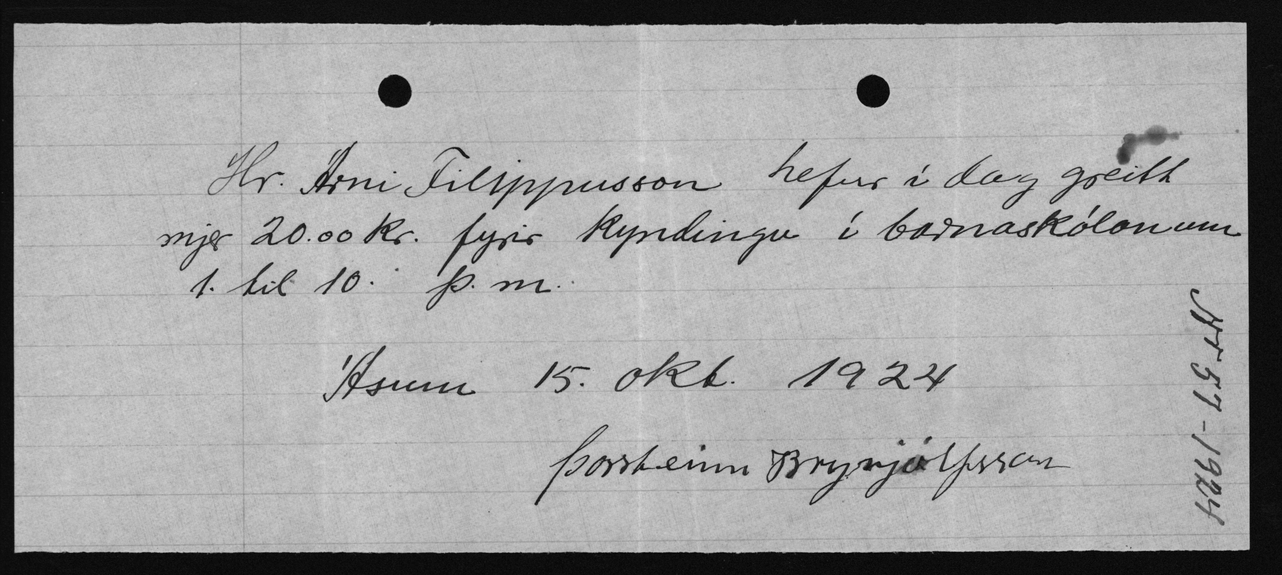 Hr. Árni Filippusson hefur í dag greitt
mjer 20.00 kr. fyrir kyndingu í barnaskólanum
1. til 10. þ. m.
Ásum 15. okt. 1924
Þorsteinn Brynjólfsson
Nr 57-1924